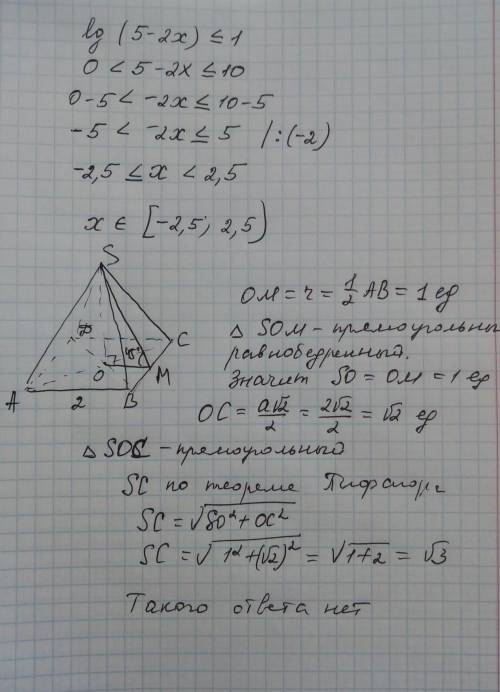 lg (5-2x) ≤ 1
0 < 5-2x ≤ 10
0-5 < -2x ≤ 10-5
-5 < -2x ≤ 5 /:(-2)
-2,5 ≤ x < 2,5
x ∈ [-2,5; 2,5)
S
D
C
45°
O
M
A
2
B
OM = r = 1/2 AB = 1 ед
△ SOM - прямоугольный
равнобедренный.
Значит SO = OM = 1 ед
OC = a√2/2 = 2√2/2 = √2 ед
△ SOC - прямоугольный
SC по теореме Пифагора
SC = √SO²+OC²
SC = √1²+(√2)² = √1+2 = √3
Такого ответа нет